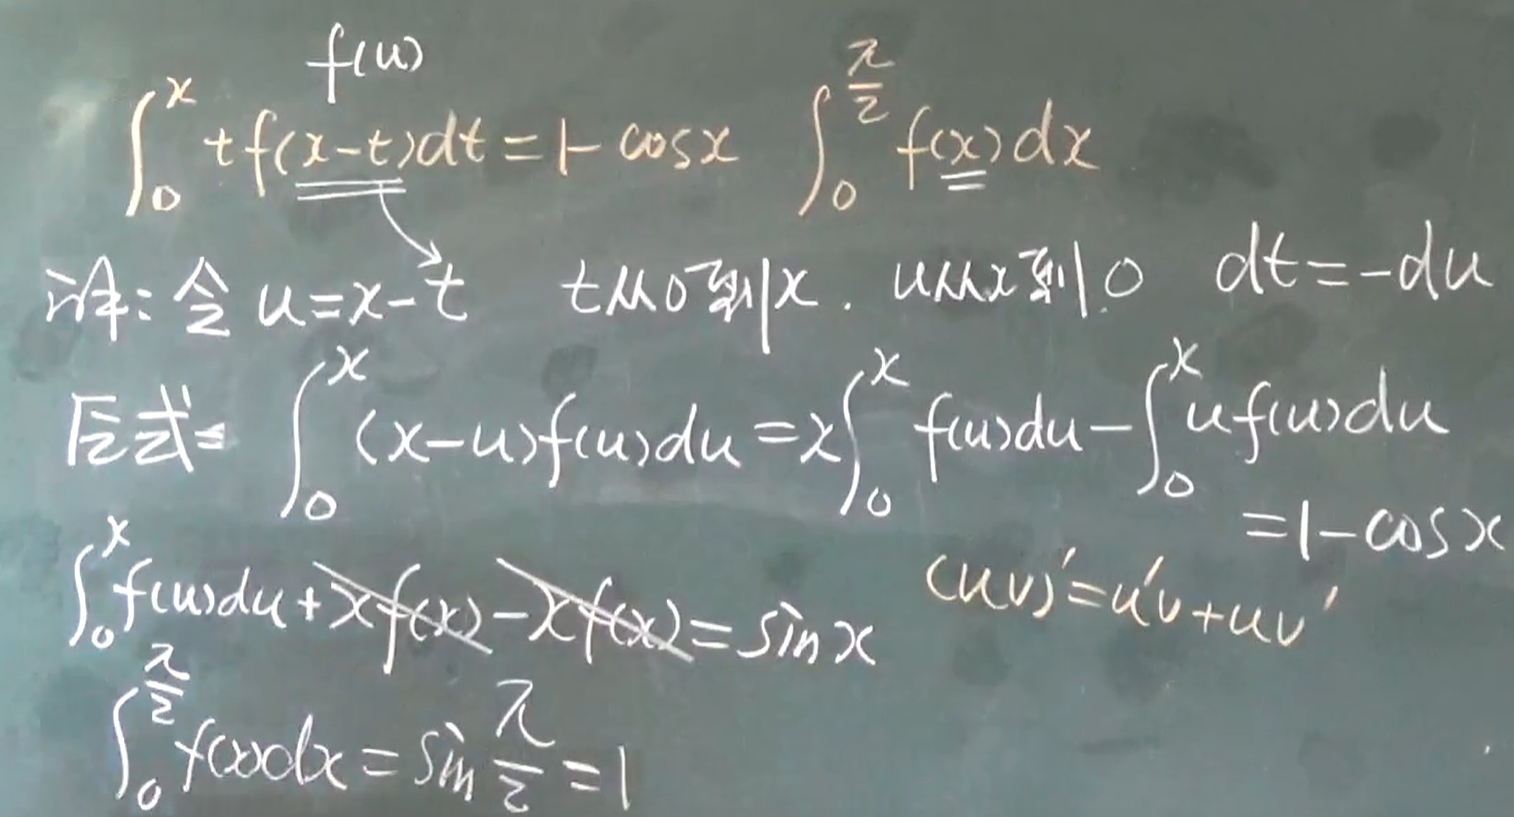 f(u)
∫₀ˣ tf(x-t)dt=1-cosx ∫₀^(π/2) f(x)dx
译:令u=x-t t从0到x.u从x到0. dt=-du
反式= ∫₀ˣ (x-u)f(u)du=x∫₀ˣ f(u)du-∫₀ˣ uf(u)du
=1-cosx
∫₀ˣ f(u)du+xf(x)-xf(x)=sinx (uv)'=u'v+uv'
∫₀^(π/2) f(x)dx=sin π/2=1